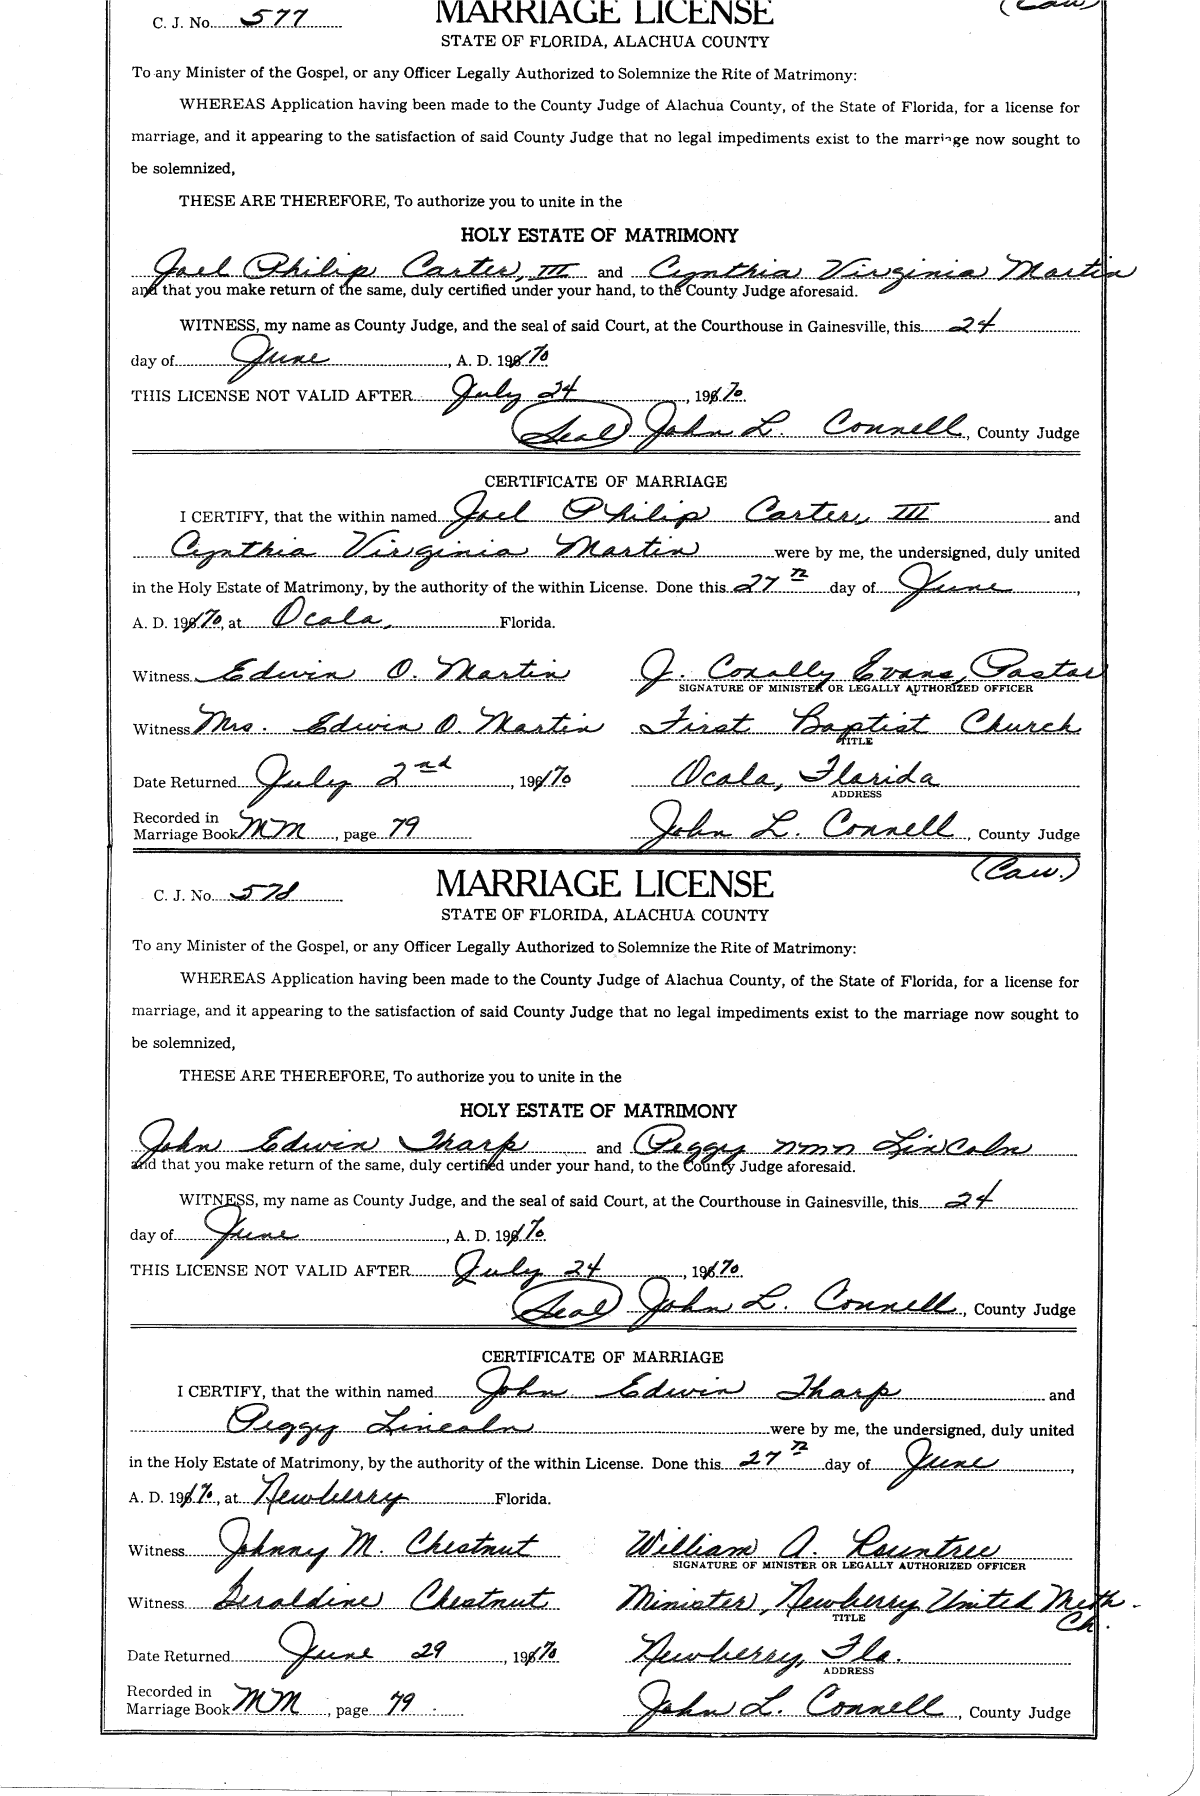 C. J. No. 577 MARRIAGE LICENSE (Cau.)
STATE OF FLORIDA, ALACHUA COUNTY
To any Minister of the Gospel, or any Officer Legally Authorized to Solemnize the Rite of Matrimony:
WHEREAS Application having been made to the County Judge of Alachua County, of the State of Florida, for a license for
marriage, and it appearing to the satisfaction of said County Judge that no legal impediments exist to the marriage now sought to
be solemnized,
THESE ARE THEREFORE, To authorize you to unite in the
HOLY ESTATE OF MATRIMONY
Joel Philip Carter, III and Cynthia Virginia Martin
and that you make return of the same, duly certified under your hand, to the County Judge aforesaid.
WITNESS, my name as County Judge, and the seal of said Court, at the Courthouse in Gainesville, this 24
day of June, A. D. 1970
THIS LICENSE NOT VALID AFTER July 24, 1970.
(Seal) John L. Connell, County Judge
CERTIFICATE OF MARRIAGE
I CERTIFY, that the within named Joel Philip Carter, III and
Cynthia Virginia Martin were by me, the undersigned, duly united
in the Holy Estate of Matrimony, by the authority of the within License. Done this 27th day of June,
A. D. 1970, at Ocala, Florida.
Witness Edwin O. Martin J. Conally Evans, Pastor
SIGNATURE OF MINISTER OR LEGALLY AUTHORIZED OFFICER
Witness Mrs. Edwin O. Martin First Baptist Church
TITLE
Date Returned July 2nd, 1970 Ocala, Florida
ADDRESS
Recorded in
Marriage Book MM, page 79 John L. Connell, County Judge
C. J. No. 578 MARRIAGE LICENSE (Cau.)
STATE OF FLORIDA, ALACHUA COUNTY
To any Minister of the Gospel, or any Officer Legally Authorized to Solemnize the Rite of Matrimony:
WHEREAS Application having been made to the County Judge of Alachua County, of the State of Florida, for a license for
marriage, and it appearing to the satisfaction of said County Judge that no legal impediments exist to the marriage now sought to
be solemnized,
THESE ARE THEREFORE, To authorize you to unite in the
HOLY ESTATE OF MATRIMONY
John Edwin Tharp and Peggy nmn Lincoln
and that you make return of the same, duly certified under your hand, to the County Judge aforesaid.
WITNESS, my name as County Judge, and the seal of said Court, at the Courthouse in Gainesville, this 24
day of June, A. D. 1970
THIS LICENSE NOT VALID AFTER July 24, 1970.
(Seal) John L. Connell, County Judge
CERTIFICATE OF MARRIAGE
I CERTIFY, that the within named John Edwin Tharp and
Peggy Lincoln were by me, the undersigned, duly united
in the Holy Estate of Matrimony, by the authority of the within License. Done this 27th day of June,
A. D. 1970, at Newberry Florida.
Witness Johnny M. Chestnut William A. Rountree
SIGNATURE OF MINISTER OR LEGALLY AUTHORIZED OFFICER
Witness Geraldine Chestnut Minister, Newberry United Meth. Ch.
TITLE
Date Returned June 29, 1970 Newberry, Fla.
ADDRESS
Recorded in
Marriage Book MM, page 79 John L. Connell, County Judge